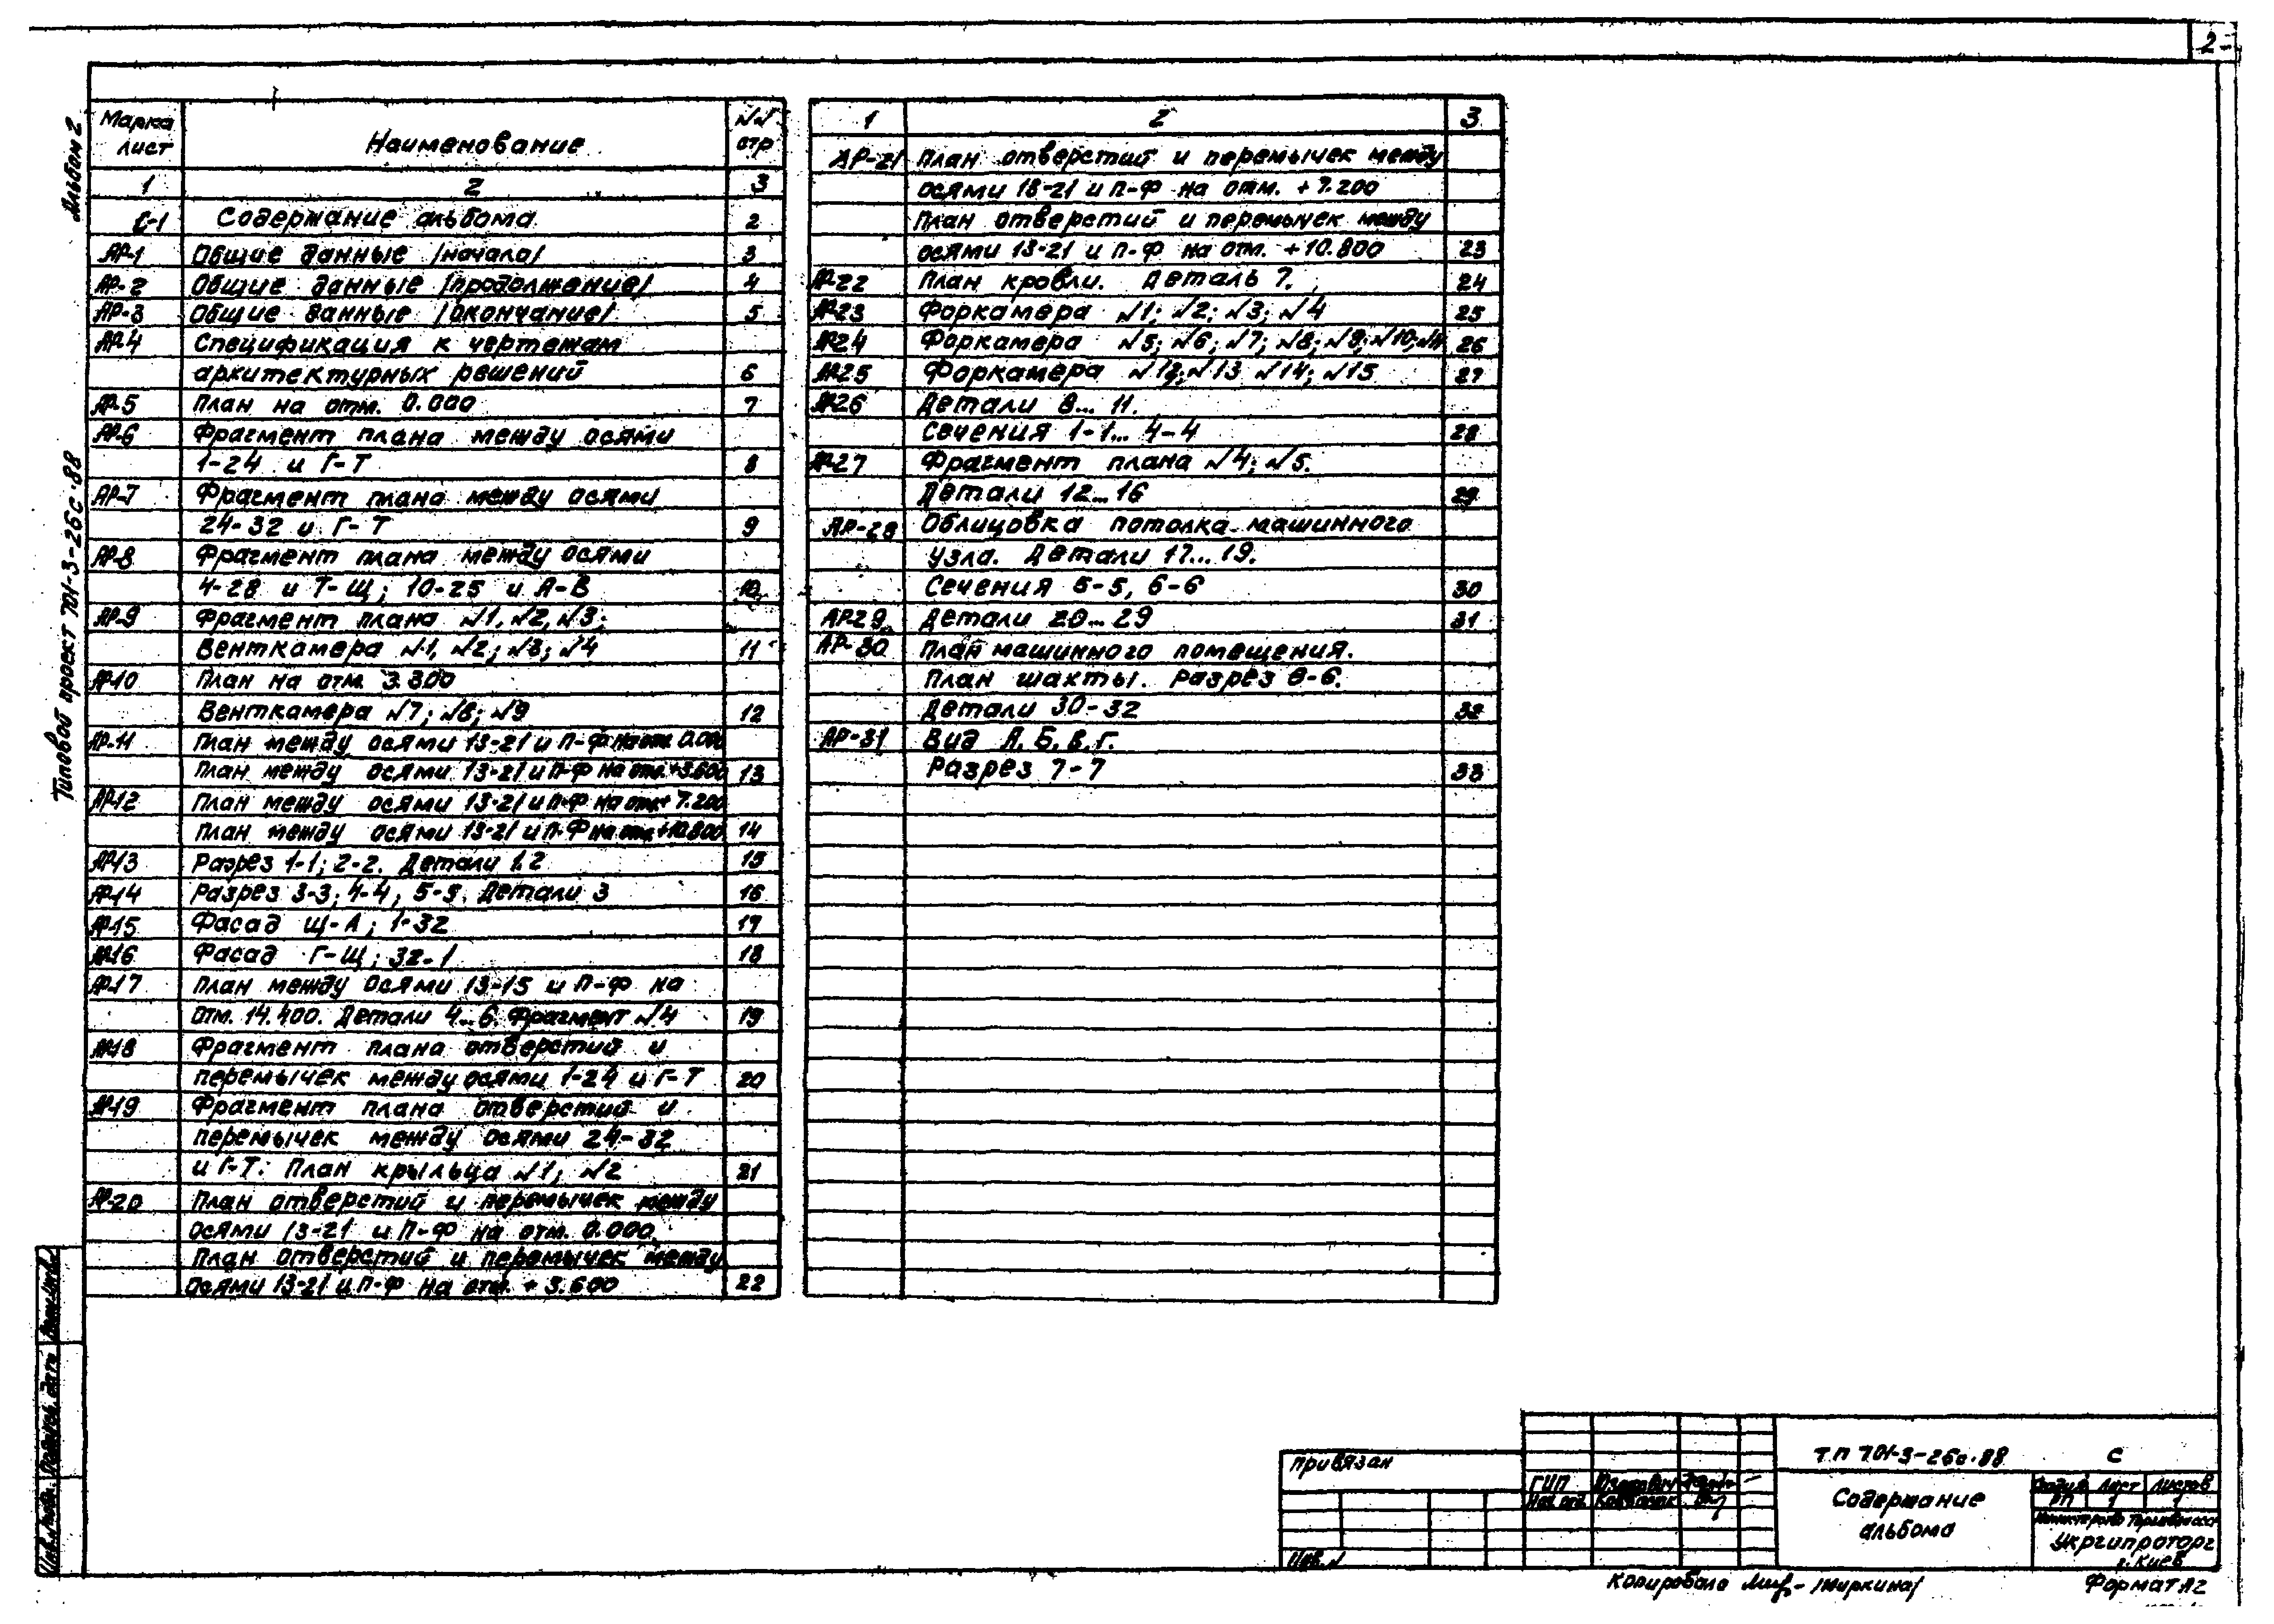 2
Альбом 2
Типовой проект 701-3-26с.88
Марка лист
Наименование
№№ стр
1 2 3
С-1 Содержание альбома 2
АР-1 Общие данные /начало/ 3
АР-2 Общие данные /продолжение/ 4
АР-3 Общие данные /окончание/ 5
АР-4 Спецификация к чертежам
архитектурных решений 6
АР-5 План на отм. 0.000 7
АР-6 Фрагмент плана между осями
1-24 и Г-Т 8
АР-7 Фрагмент плана между осями
24-32 и Г-Т 9
АР-8 Фрагмент плана между осями
4-28 и Т-Щ; 10-25 и А-В 10
АР-9 Фрагмент плана №1, №2, №3;
Венткамера №1, №2; №3; №4 11
АР-10 План на отм. 3.300
Венткамера №7; №8; №9 12
АР-11 План между осями 13-21 и П-Ф на отм. 0.000
План между осями 13-21 и П-Ф на отм. +3.600 13
АР-12 План между осями 13-21 и П-Ф на отм. + 7.200
План между осями 13-21 и П-Ф на отм. +10.800 14
АР-13 Разрез 1-1; 2-2. Детали 1,2 15
АР-14 Разрез 3-3; 4-4; 5-5. Детали 3 16
АР-15 Фасад Щ-А; 1-32 17
АР-16 Фасад Г-Щ; 32-1 18
АР-17 План между осями 13-15 и П-Ф на
отм. 14.400. Детали 4...6. Фрагмент №4 19
АР-18 Фрагмент плана отверстий и
перемычек между осями 1-24 и Г-Т 20
АР-19 Фрагмент плана отверстий и
перемычек между осями 24-32
и Г-Т. План крыльца №1; №2 21
АР-20 План отверстий и перемычек между
осями 13-21 и П-Ф на отм. 0.000.
План отверстий и перемычек между
осями 13-21 и П-Ф на отм. + 3.600 22
1 2 3
АР-21 План отверстий и перемычек между
осями 13-21 и П-Ф на отм. + 7.200
План отверстий и перемычек между
осями 13-21 и П-Ф на отм. +10.800 23
АР-22 План кровли. Деталь 7. 24
АР-23 Форкамера №1; №2; №3; №4 25
АР-24 Форкамера №5; №6; №7; №8; №9; №10; №11 26
АР-25 Форкамера №12; №13 №14; №15 27
АР-26 Детали 8... 11.
Сечения 1-1... 4-4 28
АР-27 Фрагмент плана №4; №5.
Детали 12...16 29
АР-28 Облицовка потолка машинного
узла. Детали 17...19.
Сечения 5-5, 6-6 30
АР-29 Детали 20...29 31
АР-30 План машинного помещения.
План шахты. Разрез 6-6.
Детали 30-32 32
АР-31 Вид А, Б, В, Г.
Разрез 7-7 33
Инв.№подл. Подпись, дата
Привязан
Инв.№
ГИП
Нач.отд.
ТП 701-3-26с.88 С
Содержание
альбома
Стадия Лист Листов
РП 1 1
Укргипроторг
г. Киев
Копировала /Миркина/
Формат А2